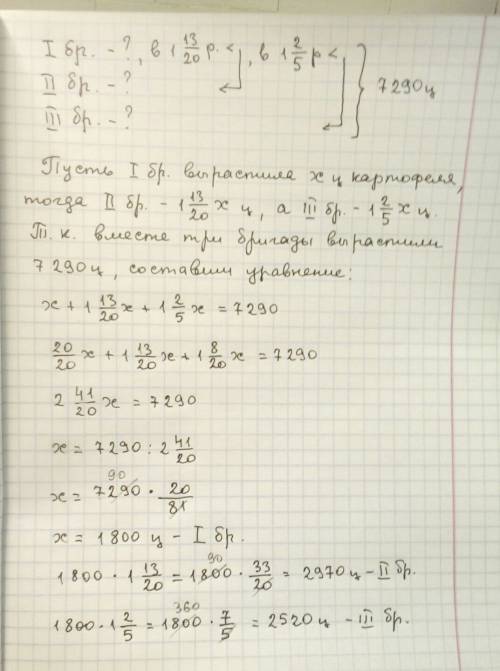 I бр. - ?, в 1 13/20 р. <, в 1 2/5 р <
II бр. - ?
III бр. - ?
7290ц
Пусть I бр. вырастила x ц картофеля,
тогда II бр. - 1 13/20 x ц, а III бр. - 1 2/5 x ц.
Т. к. вместе три бригады вырастили
7290ц, составим уравнение:
x + 1 13/20 x + 1 2/5 x = 7290
20/20 x + 1 13/20 x + 1 8/20 x = 7290
2 41/20 x = 7290
x = 7290 : 2 41/20
90
x = 7290 · 20/81
x = 1800 ц - I бр.
90
1800 · 1 13/20 = 1800 · 33/20 = 2970 ц - II бр.
360
1800 · 1 2/5 = 1800 · 7/5 = 2520 ц - III бр.